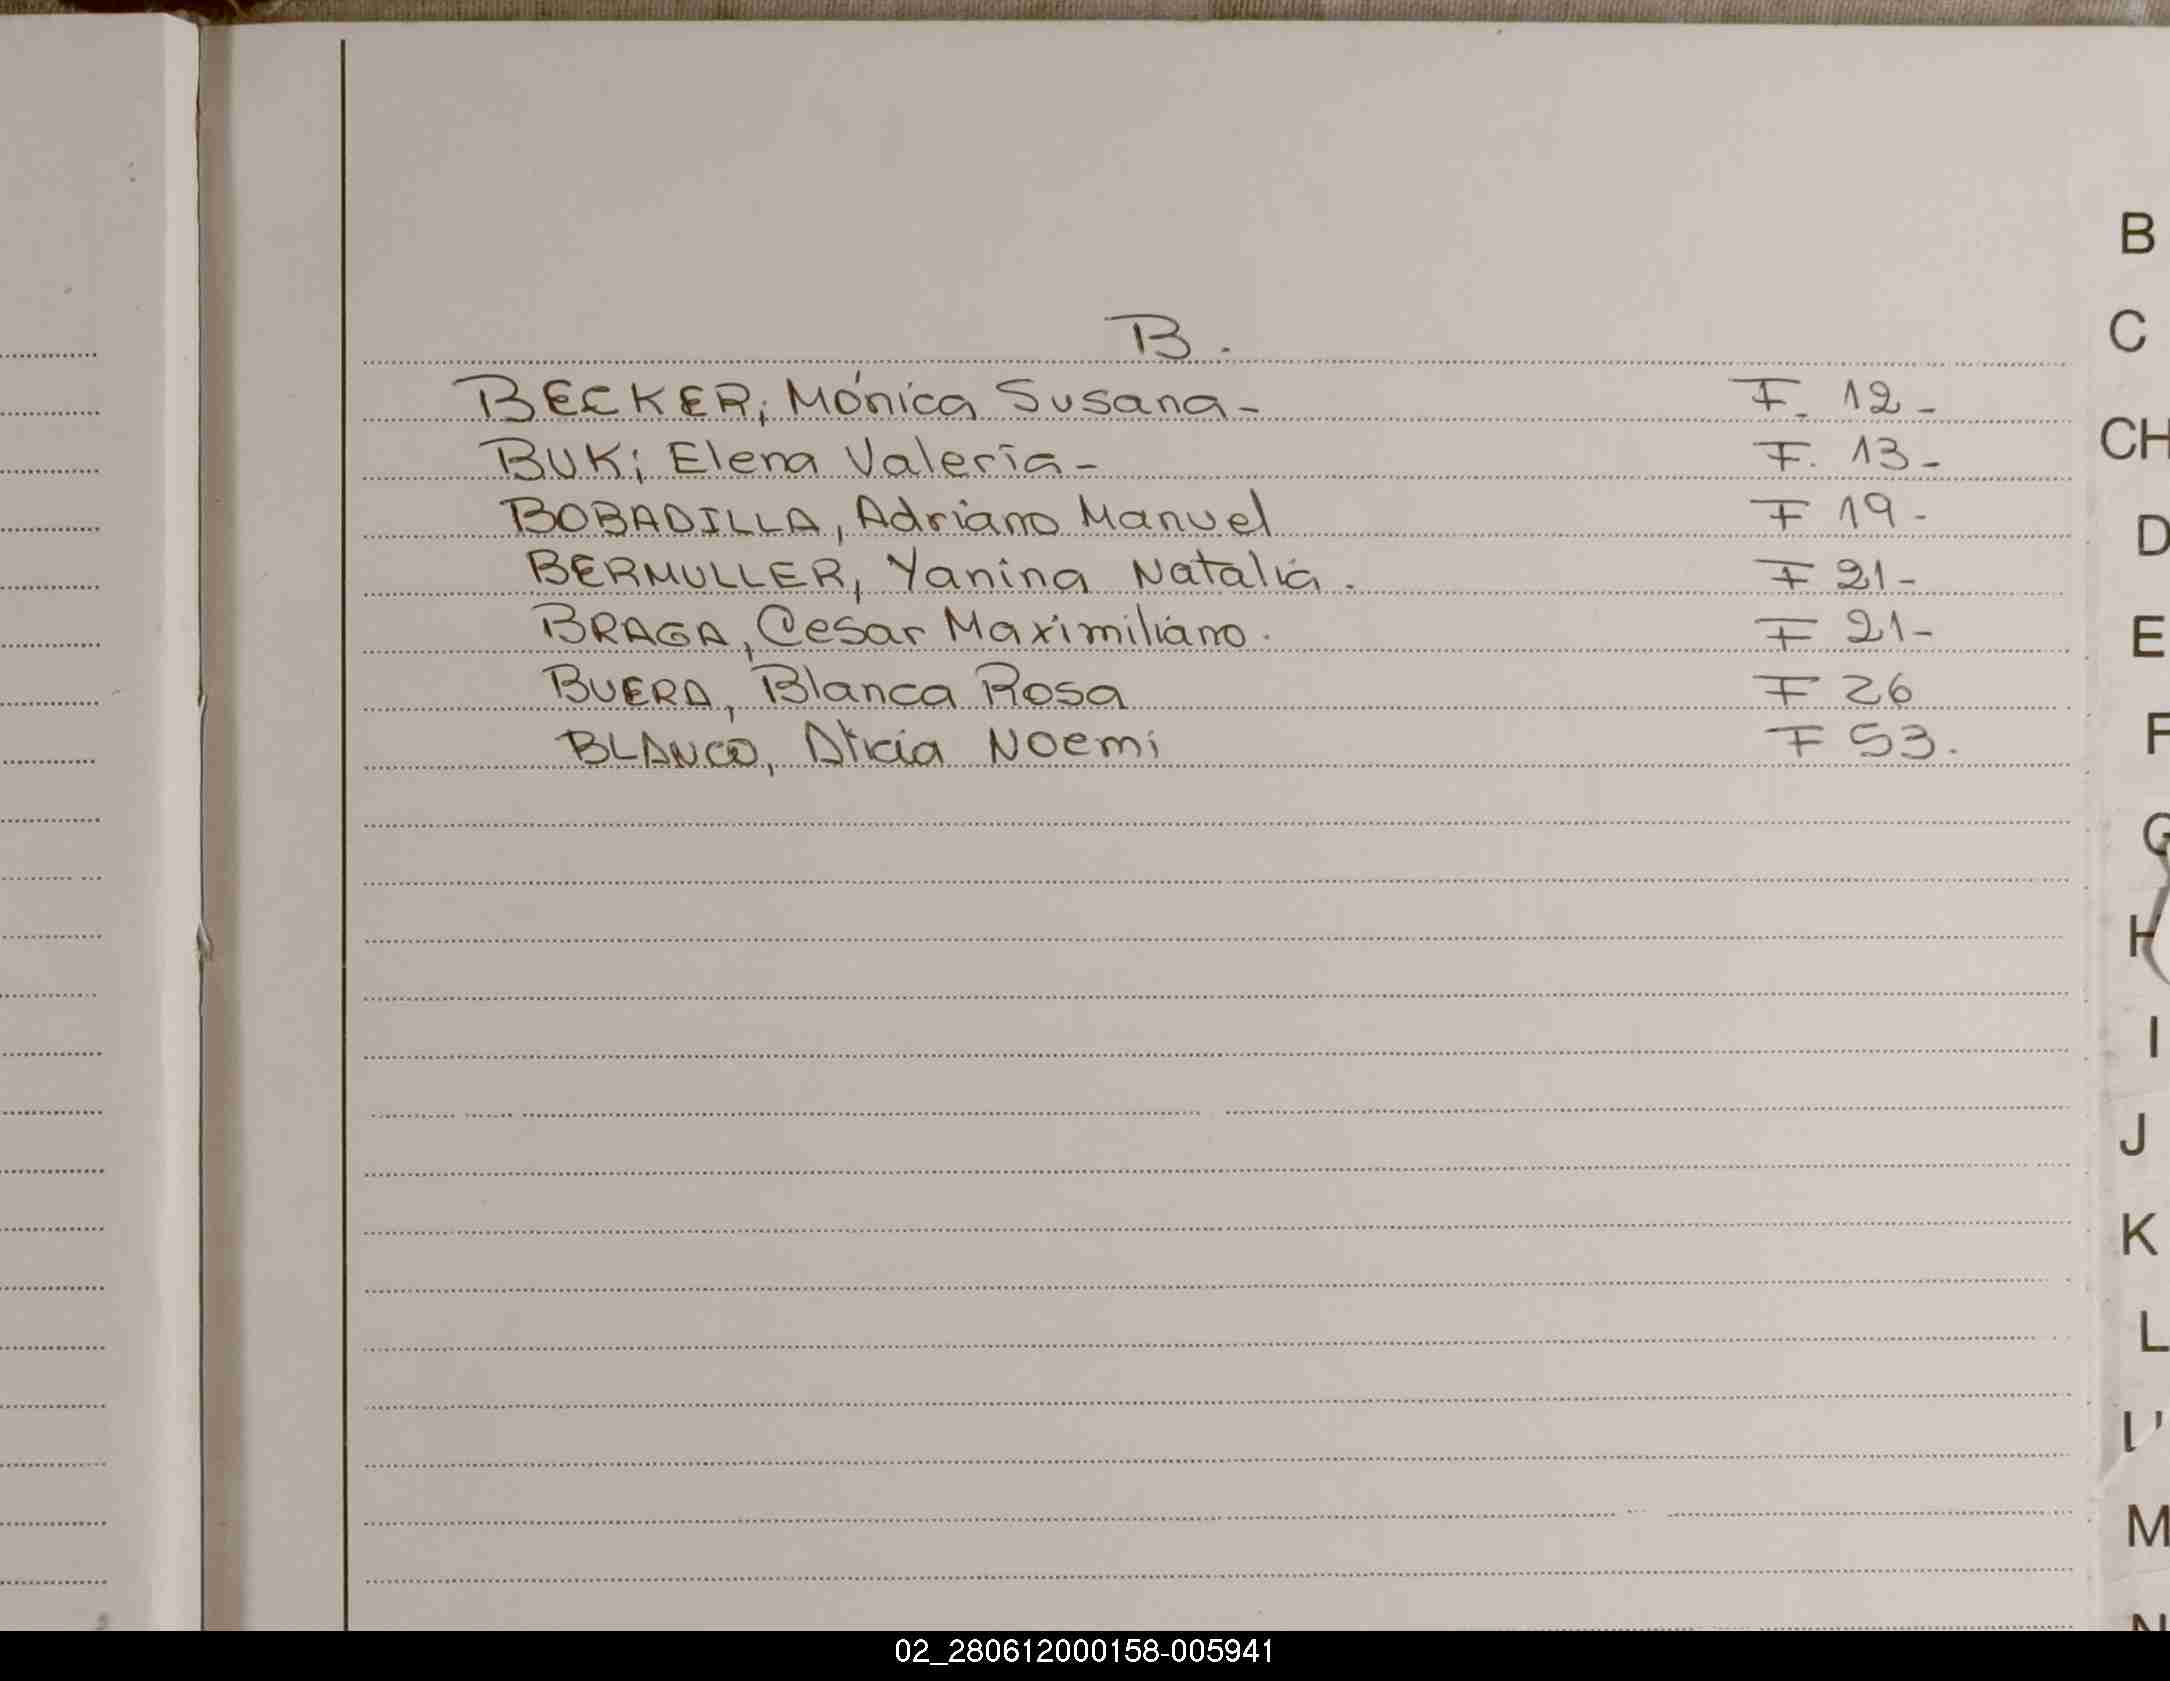 B.
BECKER; Mónica Susana - F. 12 -
BUK; Elena Valeria - F. 13 -
BOBADILLA, Adriano Manuel F 19 -
BERMULLER, Yanina Natalia. F 21 -
BRAGA, Cesar Maximiliano. F 21 -
BUERA, Blanca Rosa F 26
BLANCO, Alicia Noemi F 53.
B
C
CH
D
E
F
G
H
I
J
K
L
M
N
02_280612000158-005941